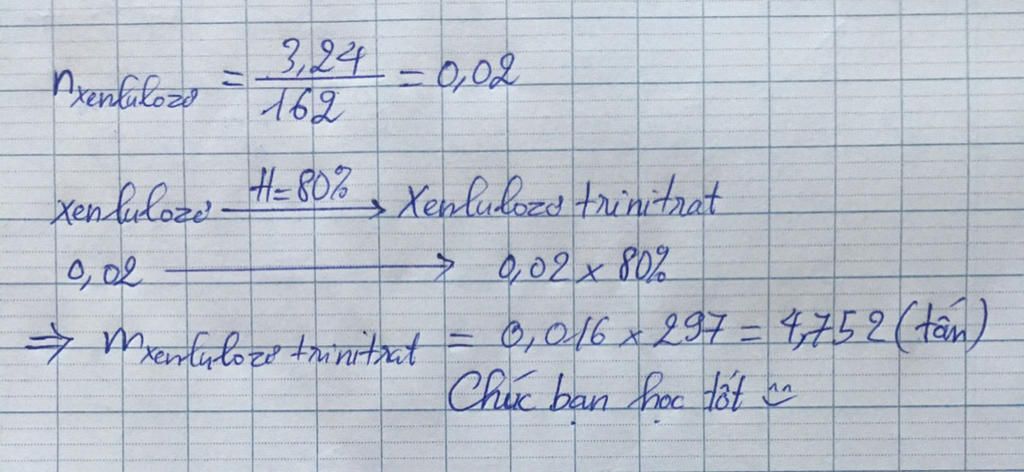 n xenlulozơ = 3,24 / 162 = 0,02
xenlulozơ —H=80%→ Xenlulozơ trinitrat
0,02 → 0,02 x 80%
⇒ m xenlulozơ trinitrat = 0,016 x 297 = 4,752 (tấn)
Chúc bạn học tốt ^^